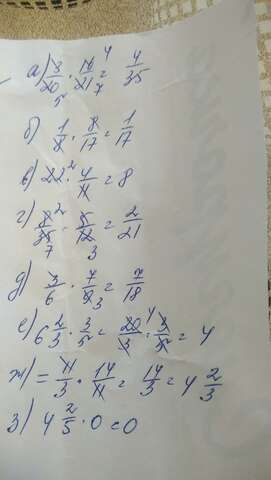 а) 3/20 · 16/21 = 4/35
б) 1/8 · 8/17 = 1/17
в) 22 · 4/11 = 8
г) 8/35 · 5/12 = 2/21
д) 3/6 · 7/9 = 7/18
е) 6 2/3 · 3/5 = 20/3 · 3/5 = 4
ж) = 11/3 · 14/11 = 14/3 = 4 2/3
з) 4 2/5 · 0 = 0